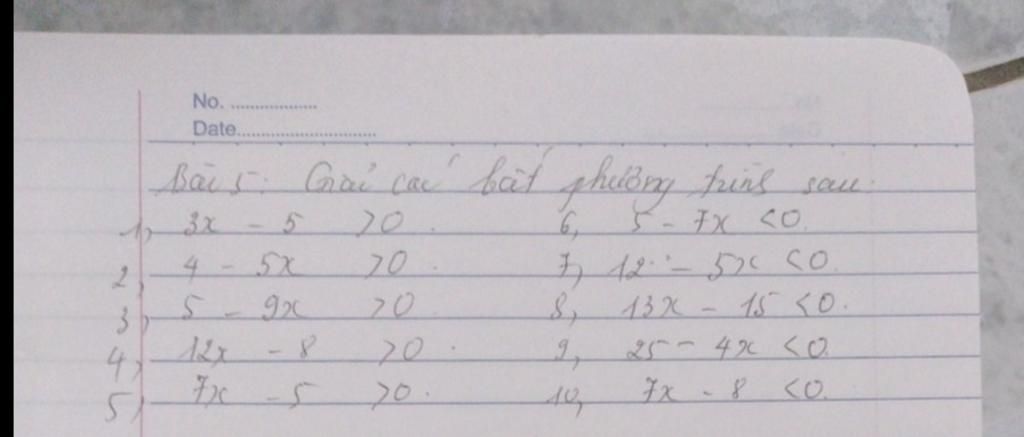 No. ..................
Date............................
Bài 5: Giải các bất phương trình sau:
1, 3x - 5 >0. 6, 5 - 7x <0.
2, 4 - 5x >0. 7, 12 - 5x <0.
3, 5 - 9x >0. 8, 13x - 15 <0.
4, 12x - 8 >0. 9, 25 - 4x <0.
5, 7x - 5 >0. 10, 7x - 8 <0.